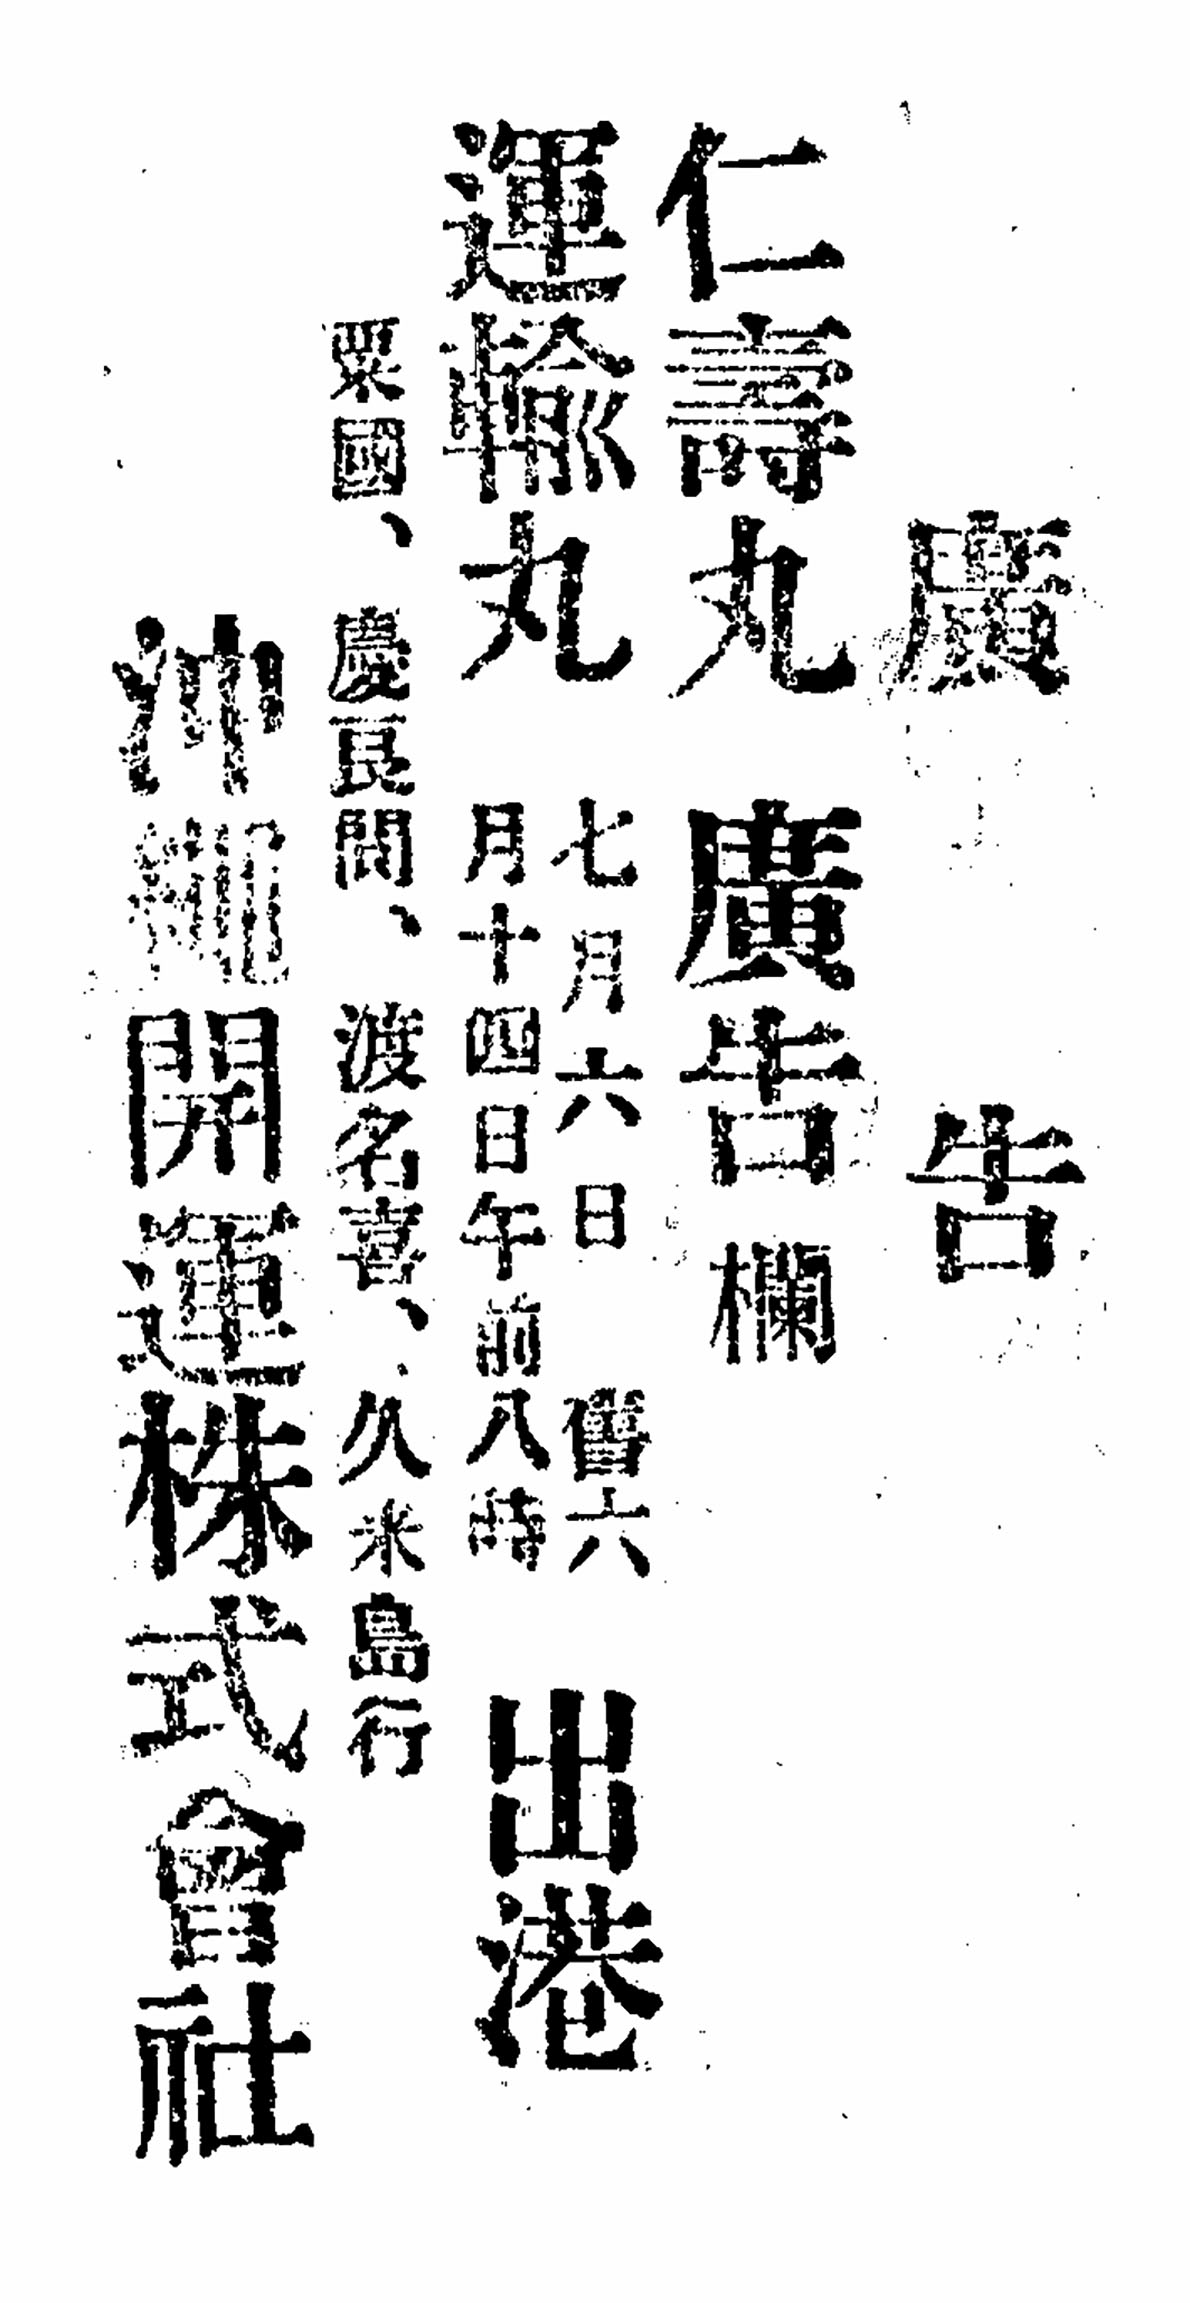 廣告
仁壽丸 廣告欄
運輸丸
七月六日 舊六
月十四日午前八時
出港
粟國、慶良間、渡名喜、久米島行
沖繩開運株式會社